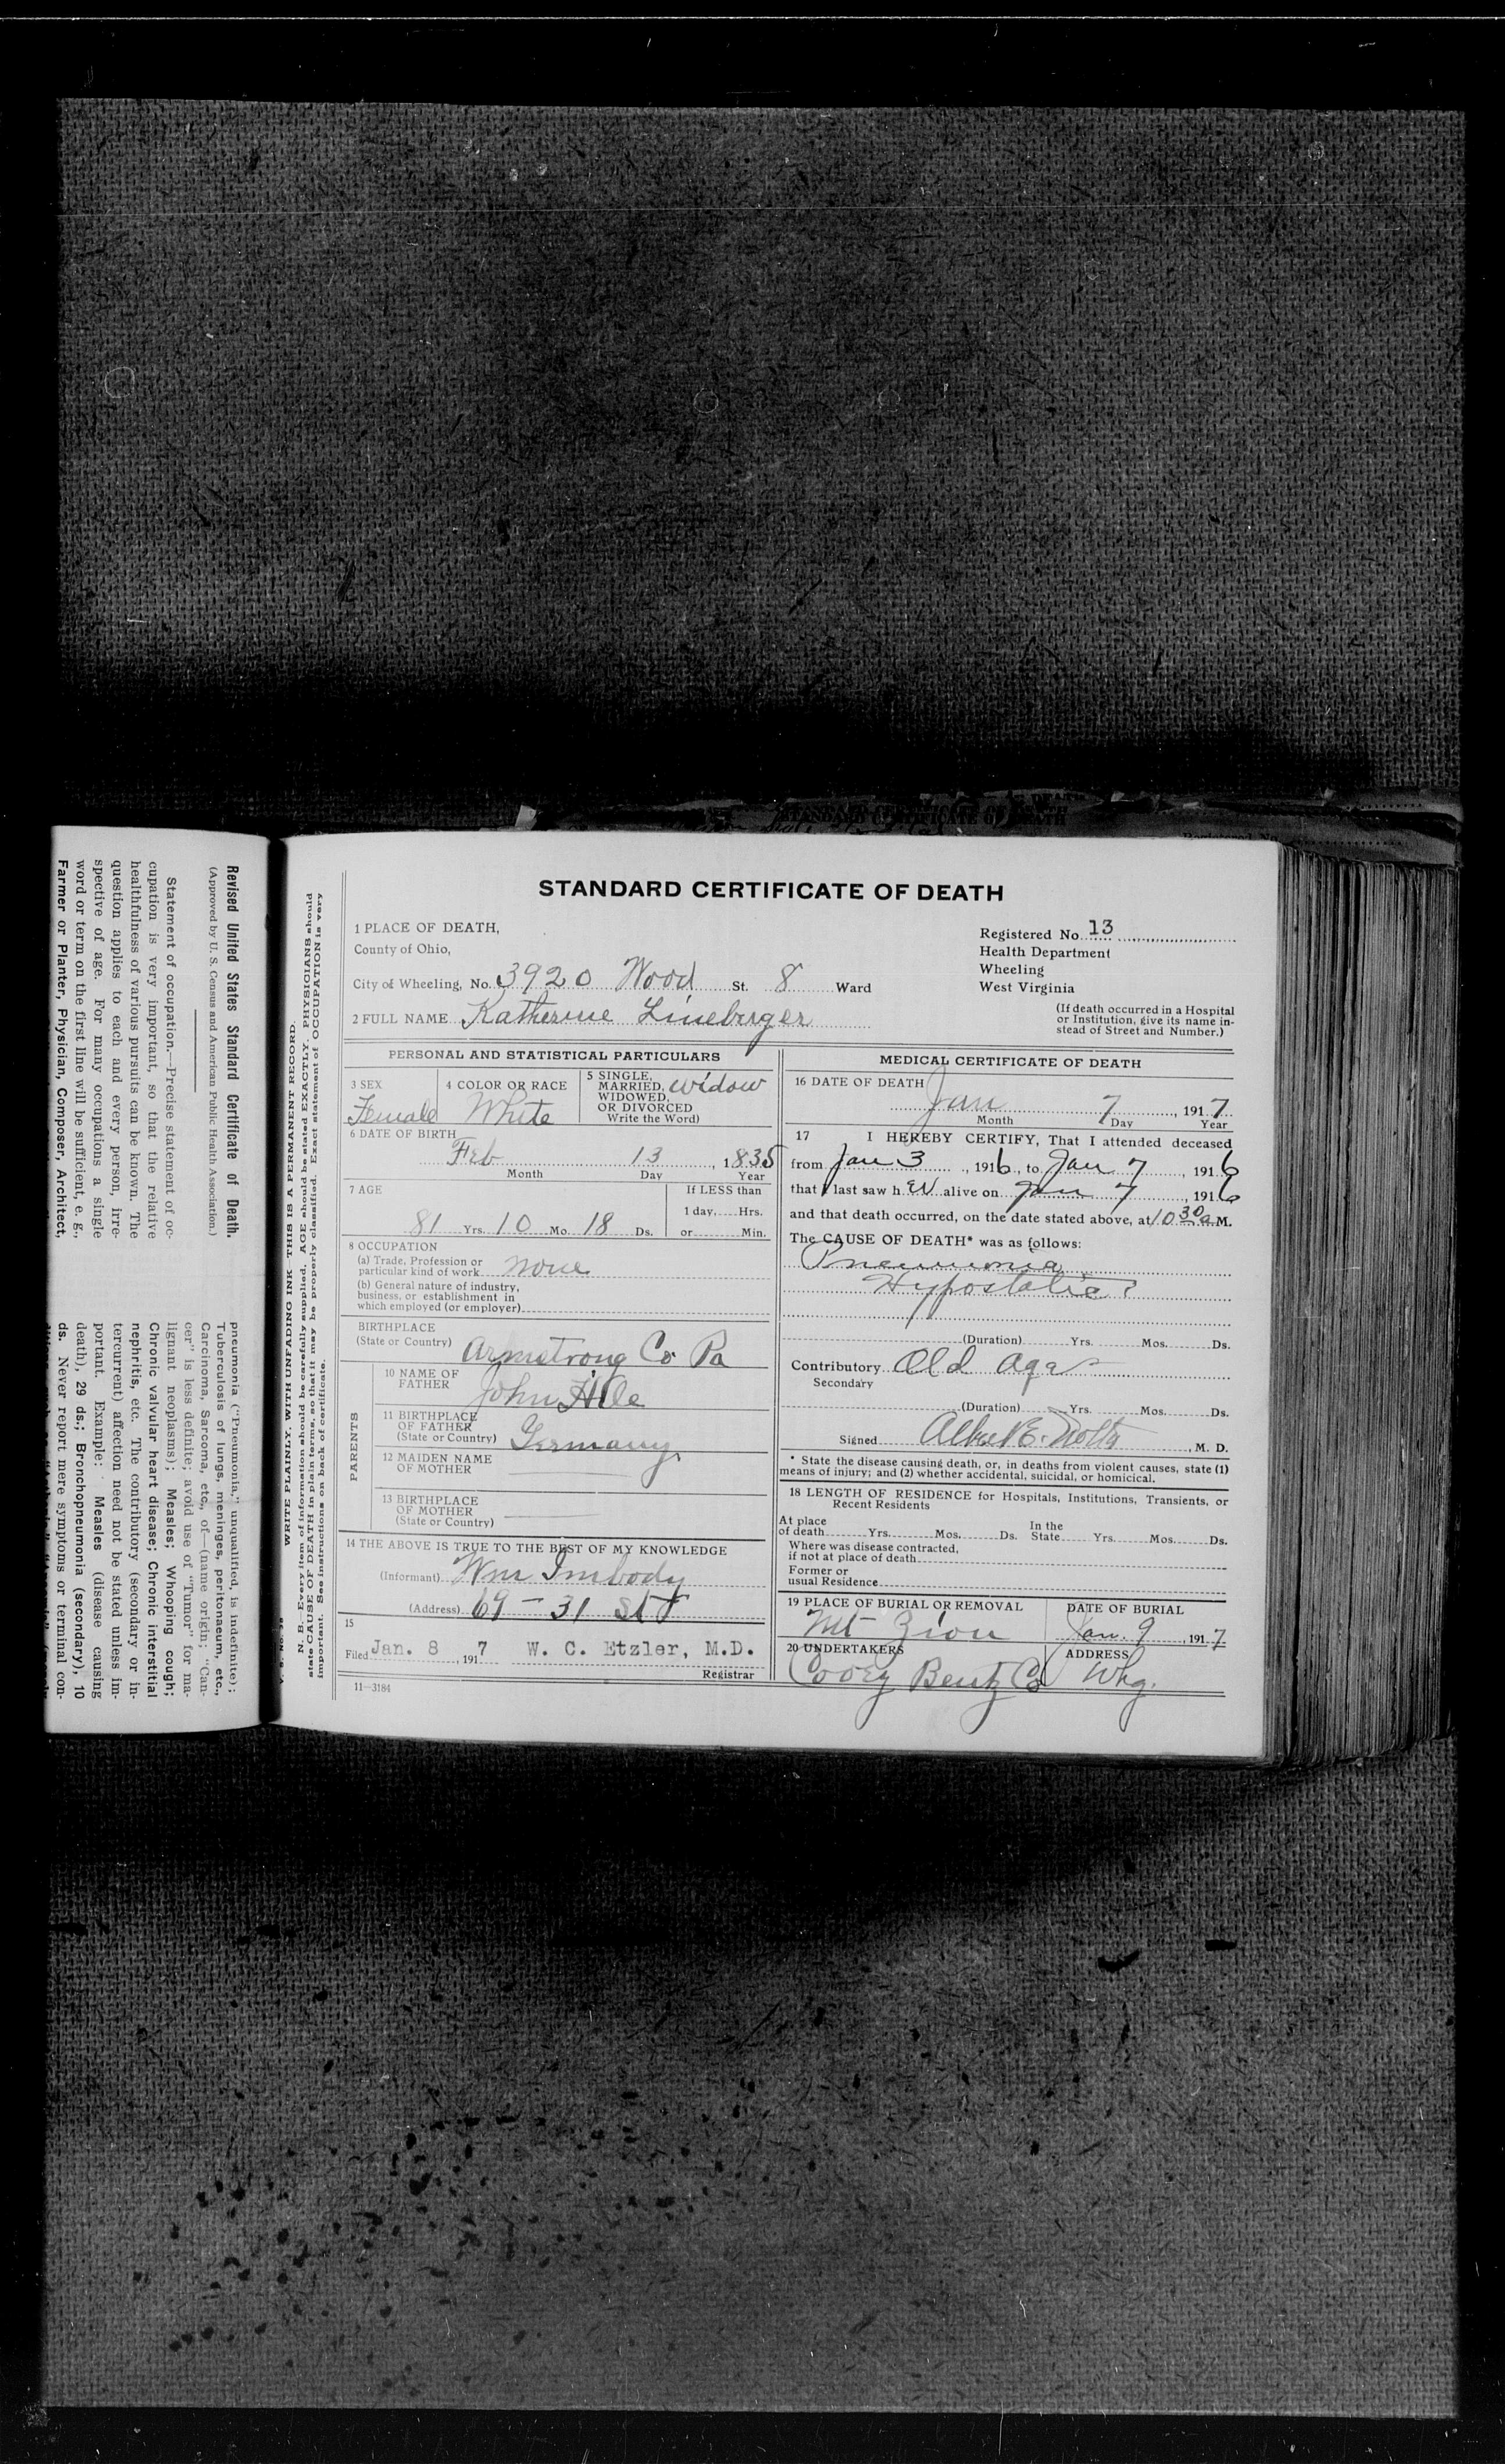 STANDARD CERTIFICATE OF DEATH
Revised United States Standard Certificate of Death.
(Approved by U. S. Census and American Public Health Association.)
Statement of occupation.—Precise statement of oc-
cupation is very important, so that the relative
healthfulness of various pursuits can be known. The
question applies to each and every person, irre-
spective of age. For many occupations a single
word or term on the first line will be sufficient, e. g.,
Farmer or Planter, Physician, Composer, Architect,
pneumonia ("Pneumonia," unqualified, is indefinite);
Tuberculosis of lungs, meninges, peritonaeum, etc.,
Carcinoma, Sarcoma, etc., of—(name origin; "Can-
cer" is less definite; avoid use of "Tumor" for ma-
lignant neoplasms); Measles; Whooping cough;
Chronic valvular heart disease; Chronic interstitial
nephritis, etc. The contributory (secondary or in-
tercurrent) affection need not be stated unless im-
portant. Example: Measles (disease causing
death), 29 ds.; Bronchopneumonia (secondary), 10
ds. Never report mere symptoms or terminal con-
WRITE PLAINLY, WITH UNFADING INK—THIS IS A PERMANENT RECORD.
N. B.—Every item of information should be carefully supplied. AGE should be stated EXACTLY. PHYSICIANS should
state CAUSE OF DEATH in plain terms, so that it may be properly classified. Exact statement of OCCUPATION is very
important. See instructions on back of certificate.
STANDARD CERTIFICATE OF DEATH
1 PLACE OF DEATH,
County of Ohio,
City of Wheeling, No. 3920 Wood St. 8 Ward
Registered No. 13
Health Department
Wheeling
West Virginia
(If death occurred in a Hospital
or Institution, give its name in-
stead of Street and Number.)
2 FULL NAME Katherine Lineberger
PERSONAL AND STATISTICAL PARTICULARS
3 SEX
Female
4 COLOR OR RACE
White
5 SINGLE,
MARRIED,
WIDOWED,
OR DIVORCED
Write the Word)
widow
6 DATE OF BIRTH
Feb 13, 1835
Month Day Year
7 AGE
81 Yrs. 10 Mo. 18 Ds.
If LESS than
1 day, Hrs.
or Min.
8 OCCUPATION
(a) Trade, Profession or
particular kind of work none
(b) General nature of industry,
business, or establishment in
which employed (or employer)
BIRTHPLACE
(State or Country) Armstrong Co Pa
PARENTS
10 NAME OF
FATHER John
11 BIRTHPLACE
OF FATHER
(State or Country) Germany
12 MAIDEN NAME
OF MOTHER
13 BIRTHPLACE
OF MOTHER
(State or Country)
14 THE ABOVE IS TRUE TO THE BEST OF MY KNOWLEDGE
(Informant) Wm Imbody
(Address) 69 - 31 St
15
Filed Jan. 8, 1917 W. C. Etzler, M.D.
Registrar
11—3184
MEDICAL CERTIFICATE OF DEATH
16 DATE OF DEATH
Jan 7, 1917
Month Day Year
17 I HEREBY CERTIFY, That I attended deceased
from Jan 3, 1916, to Jan 7, 1916
that I last saw her alive on Jan 7, 1916
and that death occurred, on the date stated above, at 10 30 a M.
The CAUSE OF DEATH* was as follows:
Pneumonia
Hypostatic
(Duration) Yrs. Mos. Ds.
Contributory Old Age
Secondary
(Duration) Yrs. Mos. Ds.
Signed Albert E. , M. D.
* State the disease causing death, or, in deaths from violent causes, state (1)
means of injury; and (2) whether accidental, suicidal, or homicical.
18 LENGTH OF RESIDENCE for Hospitals, Institutions, Transients, or
Recent Residents
At place
of death Yrs. Mos. Ds. In the
State Yrs. Mos. Ds.
Where was disease contracted,
if not at place of death
Former or
usual Residence
19 PLACE OF BURIAL OR REMOVAL
Mt Zion
DATE OF BURIAL
Jan. 9, 1917
20 UNDERTAKERS
Cooey Bentz Co
ADDRESS
Whg.